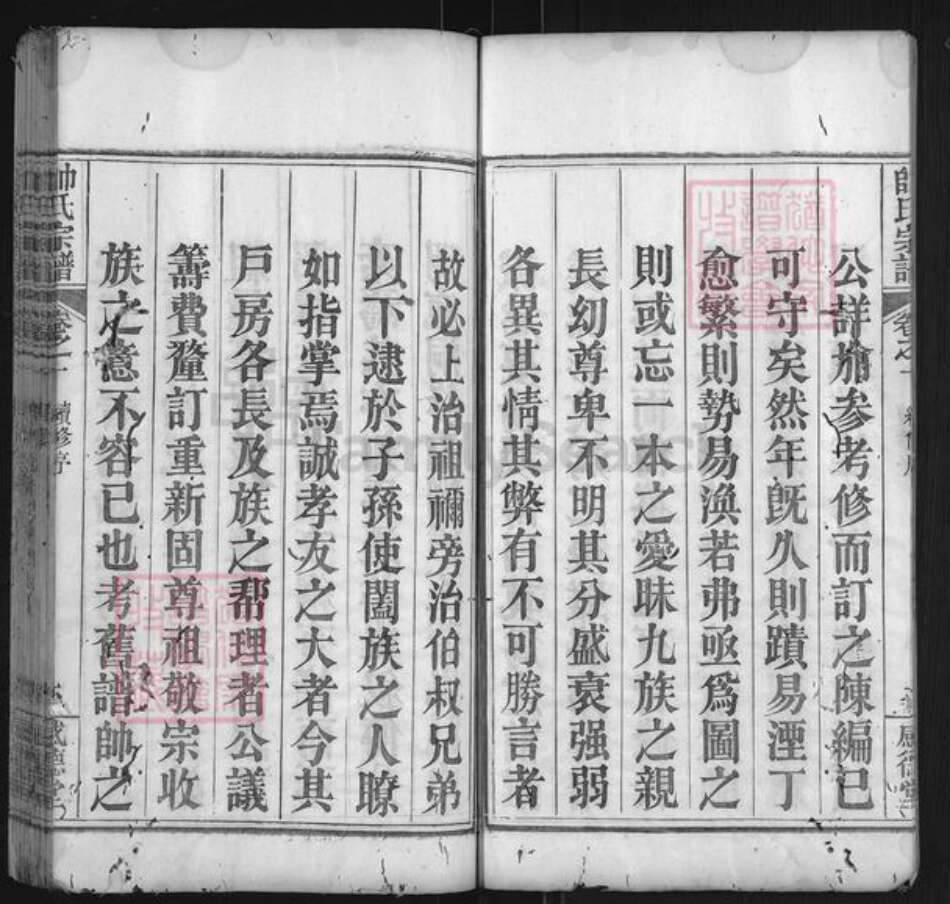 公詳搊參考修而訂之陳編已
可守矣然年旣久則蹟易湮丁
愈繁則勢易渙若弗亟爲圖之
則或忘一本之愛昧九族之親
長幼尊卑不明其分盛衰强弱
各異其情其弊有不可勝言者
故必上治祖禰旁治伯叔兄弟
以下逮於子孫使闔族之人瞭
如指掌焉誠孝友之大者今其
戶房各長及族之幇理者公議
籌費釐訂重新固尊祖敬宗收
族之意不容已也考舊譜帥之
帥氏宗譜
卷之一
續修序